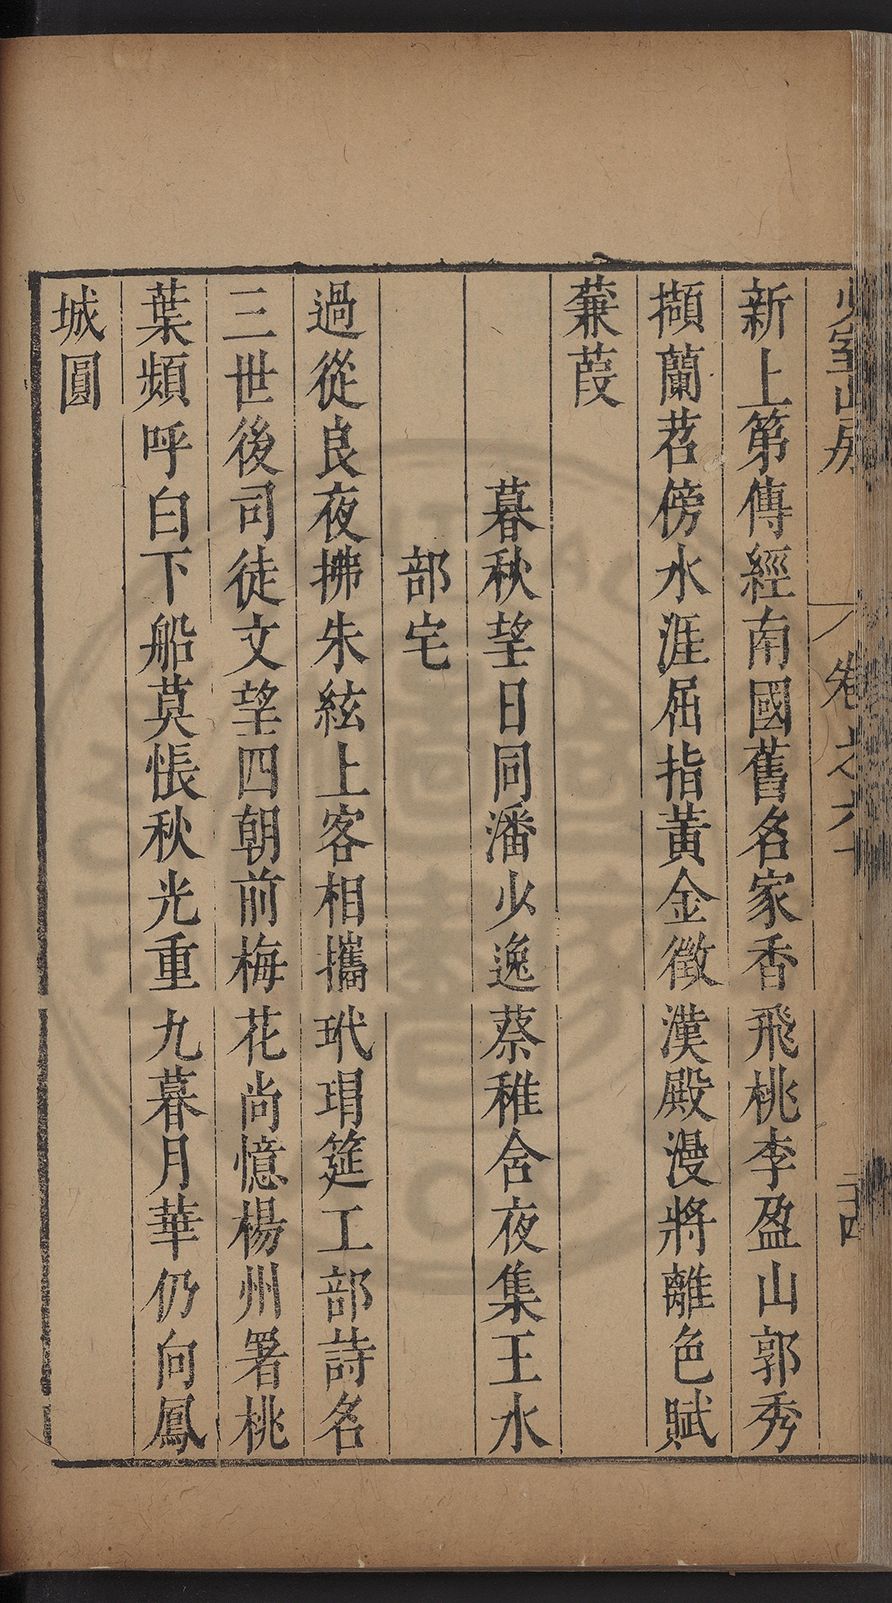 少室山房 卷之六十 二十四
新上第傳經南國舊名家香飛桃李盈山郭秀
擷蘭苕傍水涯屈指黃金徵漢殿漫將離色賦
蒹葭
暮秋望日同潘少逸蔡稚含夜集王水
部宅
過從良夜拂朱絃上客相攜玳瑁筵工部詩名
三世後司徒文望四朝前梅花尚憶楊州署桃
葉頻呼白下船莫悵秋光重九暮月華仍向鳳
城圓